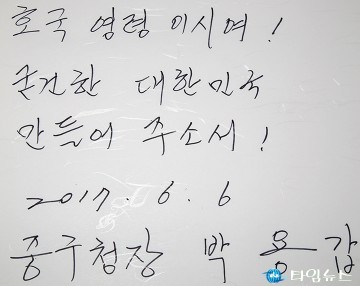 호국 영령 이시여!
굳건한 대한민국
만들어 주소서!
2017. 6. 6
중구청장 박용갑
타임뉴스